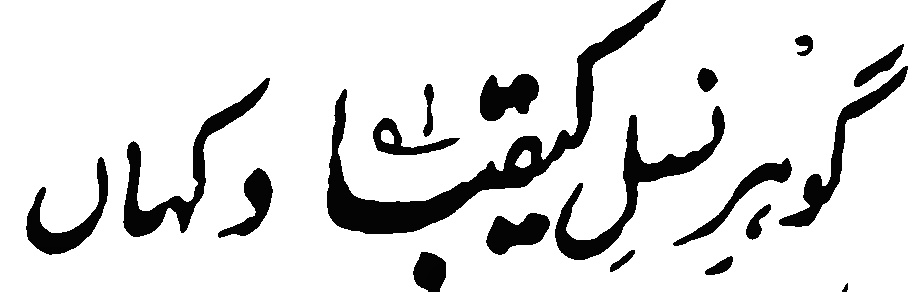 گوہرِ نسلِ کیقباد کہاں